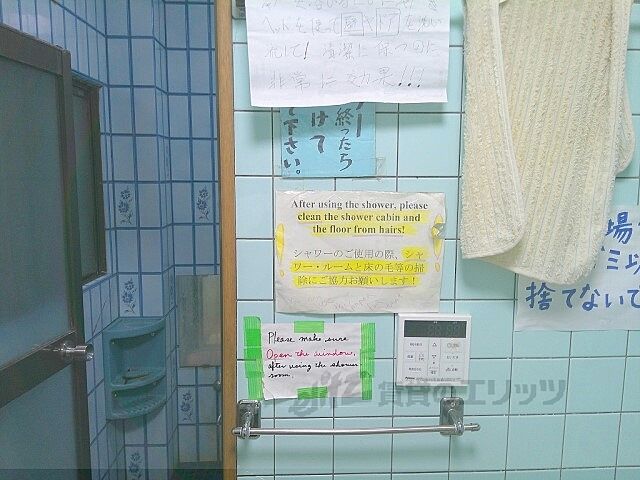 ヘッドを使って
流して！清潔に保つのに
非常に効果！！！
終ったち
けて
下さい。
After using the shower, please
clean the shower cabin and
the floor from hairs!
シャワーのご使用の際、シャ
ワー・ルームと床の毛等の掃
除にご協力お願いします！
Please make sure
Open the window,
after using the shower
room.
場
ミ以
捨てないで
賃貸のエリッツ